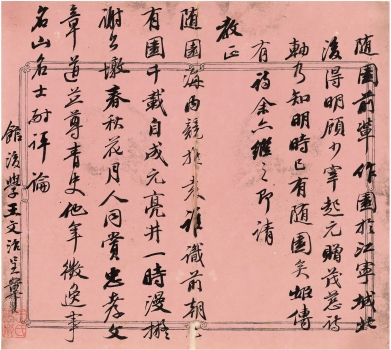 随園前輩作園於江寧城北
後得明顧少宰起元贈茂慈詩
軸乃知明時已有随園矣姬傳
有詩余亦継之即請
教正
随園海内競推袁誰識前朝已
有園千載自成元亮井一時漫擬
謝公墩春秋花月人同賞忠孝文
章道並尊青史他年徵逸事
名山名士耐評論
館後學王文治呈藁